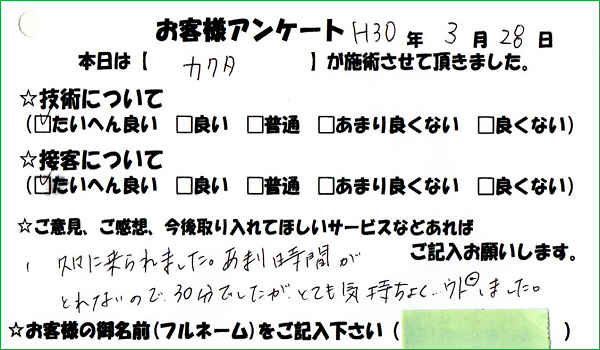 お客様アンケート H30 年 3 月 28 日
本日は【 カクタ 】が施術させて頂きました。
☆技術について
(☑たいへん良い □良い □普通 □あまり良くない □良くない)
☆接客について
(☑たいへん良い □良い □普通 □あまり良くない □良くない)
☆ご意見、ご感想、今後取り入れてほしいサービスなどあれば
ご記入お願いします。
に来られました。あまり時間が
とれないので、30分でしたが、とても気持ちよく…ウトーしました。
☆お客様の御名前(フルネーム)をご記入下さい (